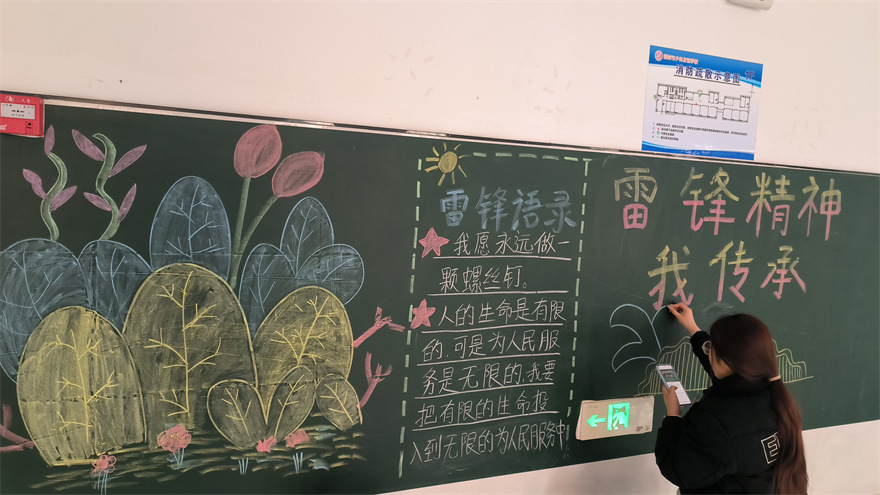 消防疏散示意图
雷锋语录
我愿永远做一
颗螺丝钉。
人的生命是有限
的,可是为人民服
务是无限的,我要
把有限的生命投
入到无限的为人民服务中!
雷锋精神
我传承